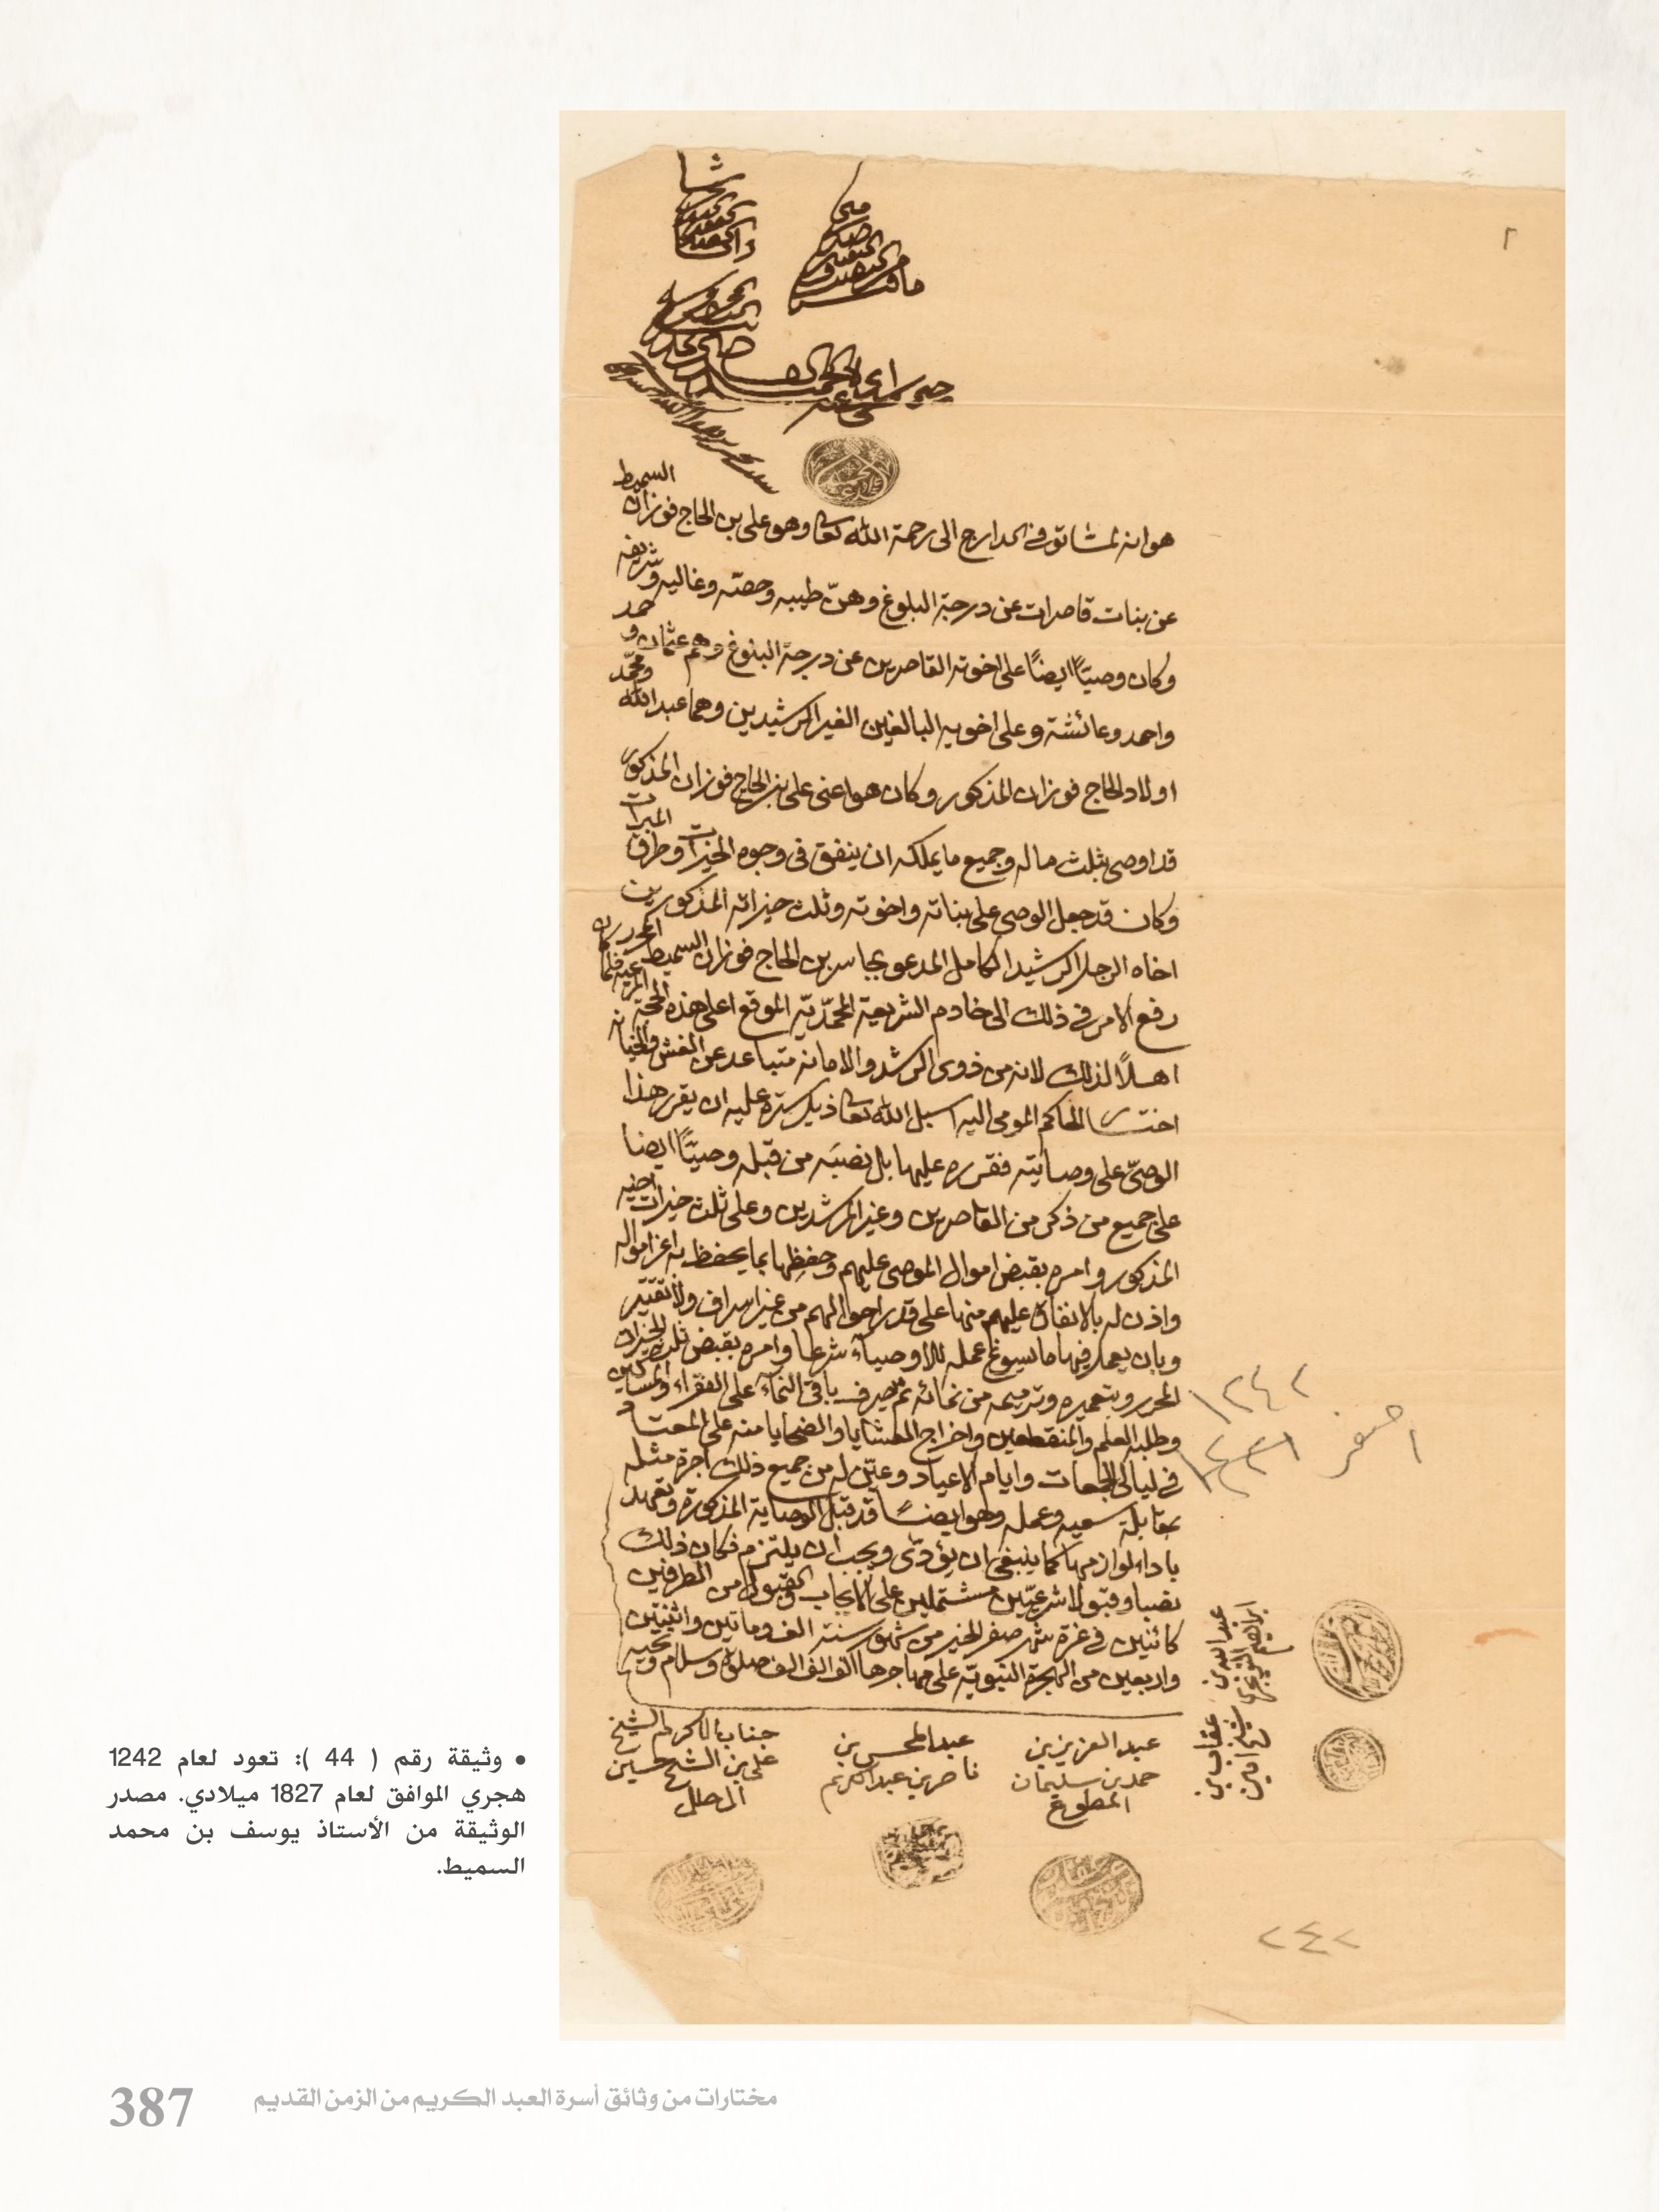 ٢
هو انه لمشا توفى المدارج الى رحمة الله تعالى وهو علي بن الحاج فوزان السميط
عن بنات قاصرات عن درجة البلوغ وهنّ طيبه وحصّه وغاليه وشريفه
وكان وصيّاً ايضاً على اخوته القاصرين عن درجة البلوغ وهم عثمان و حمد
واحمد وعائشة وعلى اخويه البالغين الغير الرشيدين وهما عبد الله ومحمّد
اولاد الحاج فوزان المذكور وكان هو اعنى علي بن الحاج فوزان المذكور
قد اوصى بثلث ماله وجميع ما يملكه ان ينفق فى وجوه الخيرات وطرق المبرات
وكان قد جعل الوصي على بناته واخوته وثلث خيراته المذكورين
اخاه الرجل الرشيد الكامل المدعو بجاسر بن الحاج فوزان السميط المحرر
رفع الامر في ذلك الى خادم الشريعة المحمّديّة الموقع اعلى هذه الحجة المرعية فلما كان
اهلاً لذلك لانه من ذوى الرشد والامانه متباعد عن الغش والخيانه
اختار الحاكم المومى اليه اسبل الله تعالى ذيل ستره عليه ان يقرر هذا
الوصيّ على وصايته فقرره عليها بل نصبَه من قبله وصيّاً ايضا
على جميع من ذكر من القاصرين وغير المرشدين وعلى ثلث خيرات اخيه
المذكور وامره بقبض اموال الموصى عليهم وحفظها بما يحفظ به اعز امواله
واذن له بالانفاق عليهم منها على قدر احوالهم من غير اسراف ولا تقتير
وبان يعمل فيها ما يسوغ عمله للاوصياء شرعا وامره بقبض ثلث الخيرات
المحرر وبتعميره وترميمه من نمائه ثم يصرف باقى النماء على الفقراء والمساكين
وطلبة العلم والمنقطعين واخراج العشايا والضحايا منه على المعتاد
في ليالى الجمعات وايام الاعياد وعيّن له من جميع ذلك اجرة مثله
بمقابلة سعيه وعمله وهو ايضاً قد قبل الوصاية المذكورة وتعهد
باداء لوازمها كما ينبغى ان يؤدّى ويجب ان يلتزم فكان ذلك
نصبا وقبولا شرعيّين مشتملين على الايجاب والقبول من الطرفين
كائنين في غرة شهر صفر الخير من شهور سنة الف وماتين واثنتين
واربعين من الهجرة النبويّة على مهاجرها الف الف صلوة وسلام وتحيه
١٢٤٢
١ صفر ١٢٤٢
عبد الله بن
ابراهيم
عقاب بن
عبد العزيز بن
حمد بن سليمان
المطوع
عبد المحسن بن
ناصر بن عبد الكريم
جناب الاكرم الشيخ
علي بن الشيخ حسين
٢٤٢
• وثيقة رقم ( 44 ): تعود لعام 1242
هجري الموافق لعام 1827 ميلادي. مصدر
الوثيقة من الأستاذ يوسف بن محمد
السميط.
مختارات من وثائق أسرة العبد الكريم من الزمن القديم
387